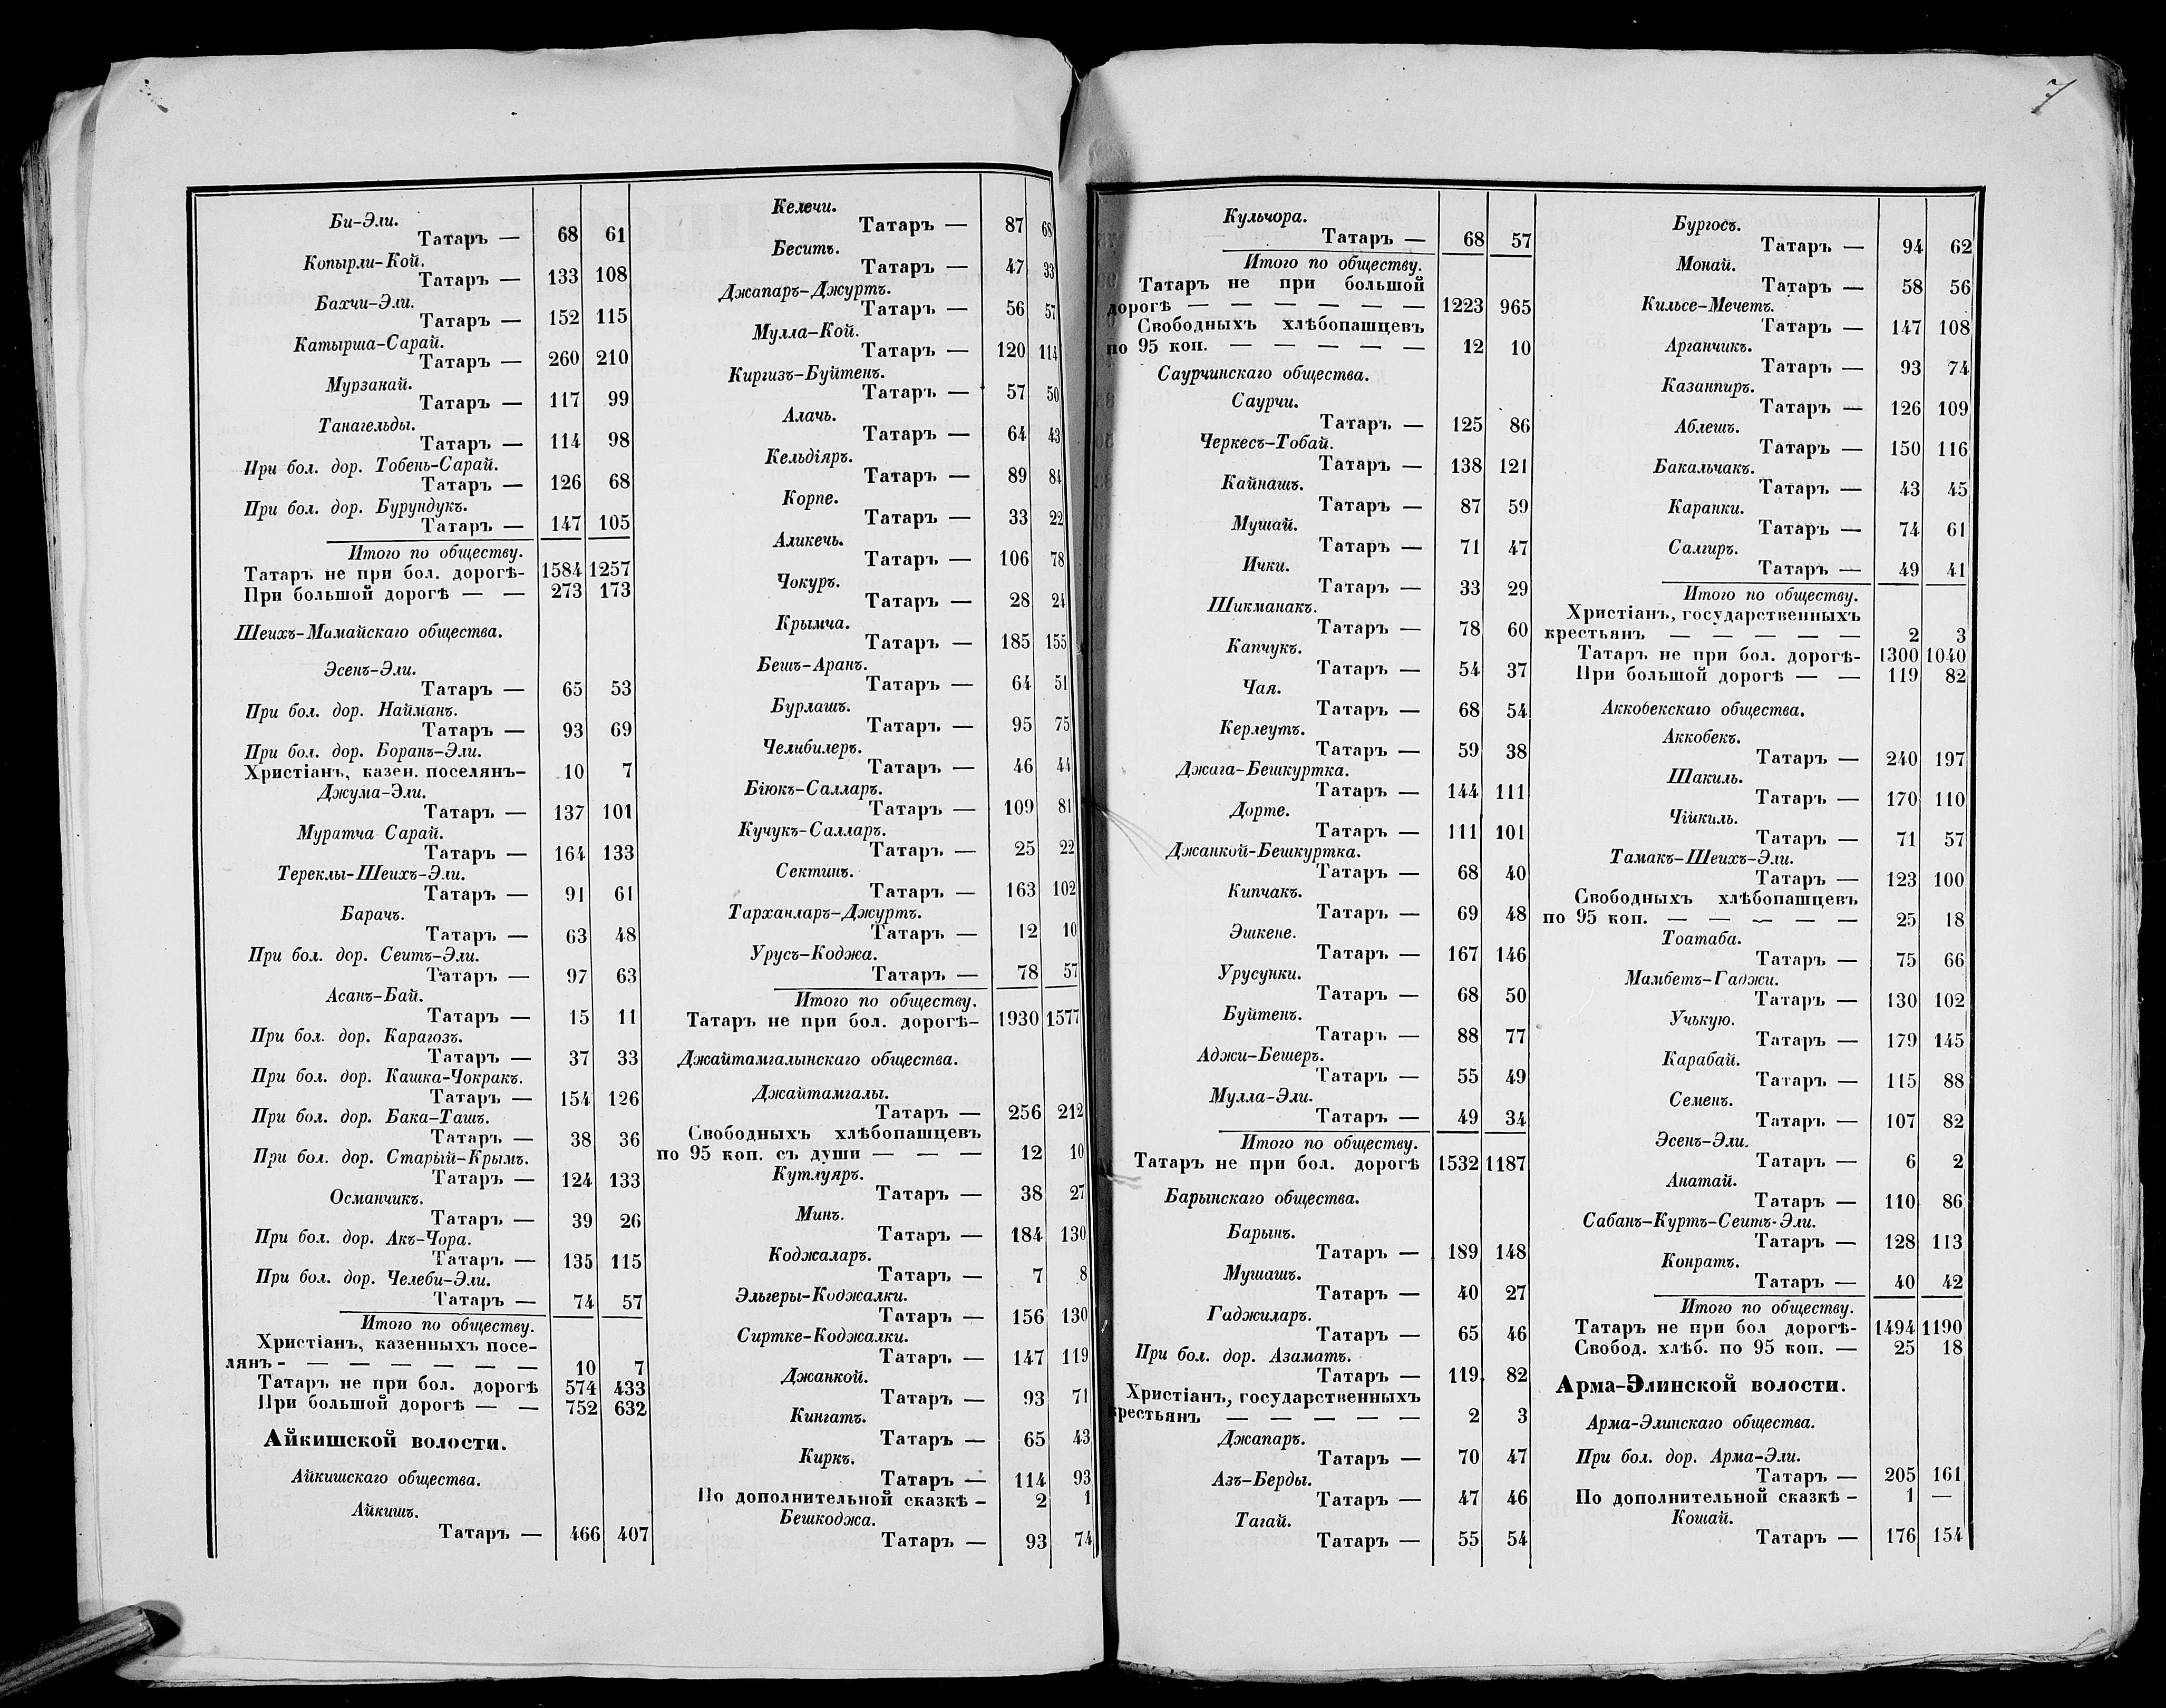 Би-Эли.
Татаръ — 68 61
Копырли-Кой.
Татаръ — 133 108
Бахчи-Эли.
Татаръ — 152 115
Катырша-Сарай.
Татаръ — 260 210
Мурзанай.
Татаръ — 117 99
Танагельды.
Татаръ — 114 98
При бол. дор. Тобень-Сарай.
Татаръ — 126 68
При бол. дор. Бурундукъ.
Татаръ — 147 105
Итого по обществу.
Татаръ не при бол. дорогѣ- 1584 1257
При большой дорогѣ — — 273 173
Шеихъ-Мамайскаго общества.
Эсень-Эли.
Татаръ — 65 53
При бол. дор. Найманъ.
Татаръ — 93 69
При бол. дор. Боранъ-Эли.
Христіанъ, казен. поселянъ- 10 7
Джума-Эли.
Татаръ — 137 101
Муратча Сарай.
Татаръ — 164 133
Тереклы-Шеихъ-Эли.
Татаръ — 91 61
Барачъ.
Татаръ — 63 48
При бол. дор. Сеитъ-Эли.
Татаръ — 97 63
Асанъ-Бай.
Татаръ — 15 11
При бол. дор. Карагозъ.
Татаръ — 37 33
При бол. дор. Кашка-Чокракъ.
Татаръ — 154 126
При бол. дор. Бака-Ташъ.
Татаръ — 38 36
При бол. дор. Старый-Крымъ.
Татаръ — 124 133
Османчикъ.
Татаръ — 39 26
При бол. дор. Акъ-Чора.
Татаръ — 135 115
При бол. дор. Челеби-Эли.
Татаръ — 74 57
Итого по обществу.
Христіанъ, казенныхъ посе-
лянъ- — — — — — — 10 7
Татаръ не при бол. дорогѣ 574 433
При большой дорогѣ — — 752 632
Айкишской волости.
Айкишскаго общества.
Айкишъ.
Татаръ — 466 407
Келечи.
Татаръ — 87 68
Беситъ.
Татаръ — 47 33
Джапаръ-Джуртъ.
Татаръ — 56 57
Мулла-Кой.
Татаръ — 120 114
Киргизъ-Буйтень.
Татаръ — 57 50
Алачь.
Татаръ — 64 43
Кельдіяръ.
Татаръ — 89 84
Корпе.
Татаръ — 33 22
Аликечь.
Татаръ — 106 78
Чокуръ.
Татаръ — 28 24
Крымча.
Татаръ — 185 155
Бешъ-Аранъ.
Татаръ — 64 51
Бурлашъ.
Татаръ — 95 75
Челибилеръ.
Татаръ — 46 44
Біюкъ-Салларъ.
Татаръ — 109 81
Кучукъ-Салларъ.
Татаръ — 25 22
Сектинъ.
Татаръ — 163 102
Тарханларъ-Джуртъ.
Татаръ — 12 10
Урусъ-Коджа.
Татаръ — 78 57
Итого по обществу.
Татаръ не при бол. дорогѣ- 1930 1577
Джайтамгалынскаго общества.
Джайтамгалы.
Татаръ — 256 212
Свободныхъ хлѣбопашцевъ
по 95 коп. съ души — — — 12 10
Кутлуяръ.
Татаръ — 38 27
Минъ.
Татаръ — 184 130
Коджаларъ.
Татаръ — 7 8
Эльгеры-Коджалки.
Татаръ — 156 130
Сиртке-Коджалки.
Татаръ — 147 119
Джанкой.
Татаръ — 93 71
Кингатъ.
Татаръ — 65 43
Киркъ.
Татаръ — 114 93
По дополнительной сказкѣ - 2 1
Бешкоджа.
Татаръ — 93 74
Кульчора.
Татаръ — 68 57
Итого по обществу.
Татаръ не при большой
дорогѣ — — — — — — 1223 965
Свободныхъ хлѣбопашцевъ
по 95 коп. — — — — — 12 10
Саурчинскаго общества.
Саурчи.
Татаръ — 125 86
Черкесъ-Тобай.
Татаръ — 138 121
Кайнашъ.
Татаръ — 87 59
Мушай.
Татаръ — 71 47
Ички.
Татаръ — 33 29
Шикманакъ.
Татаръ — 78 60
Капчукъ.
Татаръ — 54 37
Чая.
Татаръ — 68 54
Керлеутъ.
Татаръ — 59 38
Джага-Бешкуртка.
Татаръ — 144 111
Дорте.
Татаръ — 111 101
Джанкой-Бешкуртка.
Татаръ — 68 40
Кипчакъ.
Татаръ — 69 48
Эшкене.
Татаръ — 167 146
Урусунки.
Татаръ — 68 50
Буйтень.
Татаръ — 88 77
Аджи-Бешеръ.
Татаръ — 55 49
Мулла-Эли.
Татаръ — 49 34
Итого по обществу.
Татаръ не при бол. дорогѣ 1532 1187
Барынскаго общества.
Барынъ.
Татаръ — 189 148
Мушашъ.
Татаръ — 40 27
Гаджиларъ.
Татаръ — 65 46
При бол. дор. Азаматъ.
Татаръ — 119 82
Христіанъ, государственныхъ
крестьянъ — — — — — 2 3
Джапаръ.
Татаръ — 70 47
Азъ-Берды.
Татаръ — 47 46
Тагай.
Татаръ — 55 54
Бургосъ.
Татаръ — 94 62
Монай.
Татаръ — 58 56
Кильсе-Мечетъ.
Татаръ — 147 108
Арганчикъ.
Татаръ — 93 74
Казанпиръ.
Татаръ — 126 109
Аблешъ.
Татаръ — 150 116
Бакальчакъ.
Татаръ — 43 45
Каранки.
Татаръ — 74 61
Салгиръ.
Татаръ — 49 41
Итого по обществу.
Христіанъ, государственныхъ
крестьянъ — — — — — 2 3
Татаръ не при бол. дорогѣ- 1300 1040
При большой дорогѣ — — 119 82
Аккобекскаго общества.
Аккобекъ.
Татаръ — 240 197
Шакиль.
Татаръ — 170 110
Чійкиль.
Татаръ — 71 57
Тамакъ-Шеихъ-Эли.
Татаръ — 123 100
Свободныхъ хлѣбопашцевъ
по 95 коп. — — — — — 25 18
Тоатаба.
Татаръ — 75 66
Мамбетъ-Гаджи.
Татаръ — 130 102
Учькую.
Татаръ — 179 145
Карабай.
Татаръ — 115 88
Семенъ.
Татаръ — 107 82
Эсень-Эли.
Татаръ — 6 2
Анатай.
Татаръ — 110 86
Сабанъ-Куртъ-Сеитъ-Эли.
Татаръ — 128 113
Конратъ.
Татаръ — 40 42
Итого по обществу.
Татаръ не при бол дорогѣ- 1494 1190
Свобод. хлѣб. по 95 коп. — 25 18
Арма-Элинской волости.
Арма-Элинскаго общества.
При бол. дор. Арма-Эли.
Татаръ — 205 161
По дополнительной сказкѣ - 1 —
Кошай.
Татаръ — 176 154